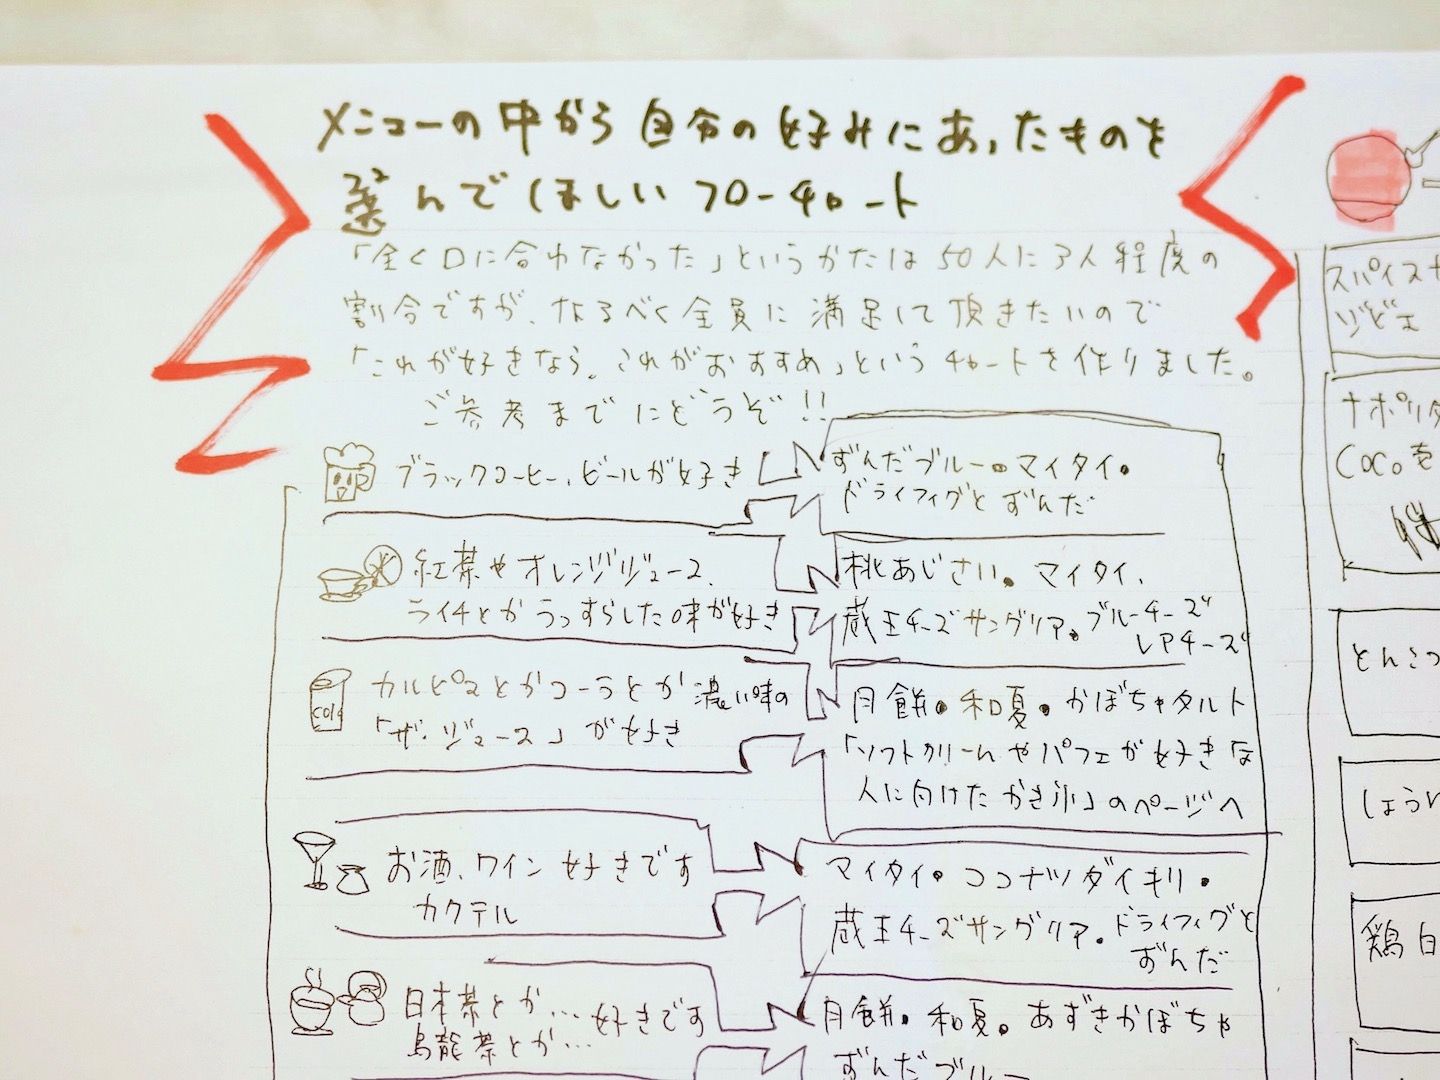 メニューの中から自分の好みにあったものを
選んでほしいフローチャート
「全く口に合わなかった」というかたは50人に3人程度の
割合ですが、なるべく全員に満足して頂きたいので
「これが好きなら、これがおすすめ」というチャートを作りました。
ご参考までにどうぞ!!
ブラックコーヒー、ビールが好き
ずんだブルー・マイタイ・
ドライフィグとずんだ
紅茶やオレンジジュース、
ライチとかうっすらした味が好き
桃あじさい。マイタイ、
蔵王チーズサングリア。ブルーチーズ
レアチーズ
cola
カルピスとかコーラとか濃い味の
「ザ・ジュース」が好き
月餅・和夏・かぼちゃタルト
「ソフトクリームやパフェが好きな
人に向けたかき氷」のページへ
お酒、ワイン好きです
カクテル
マイタイ・ココナツダイキリ・
蔵王チーズサングリア。ドライフィグと
ずんだ
日本茶とか…好きです
烏龍茶とか…
月餅・和夏。あずきかぼちゃ
ずんだブルー
スパイス
ナポリタ
COCOを
とんこつ
しょうゆ
鶏白